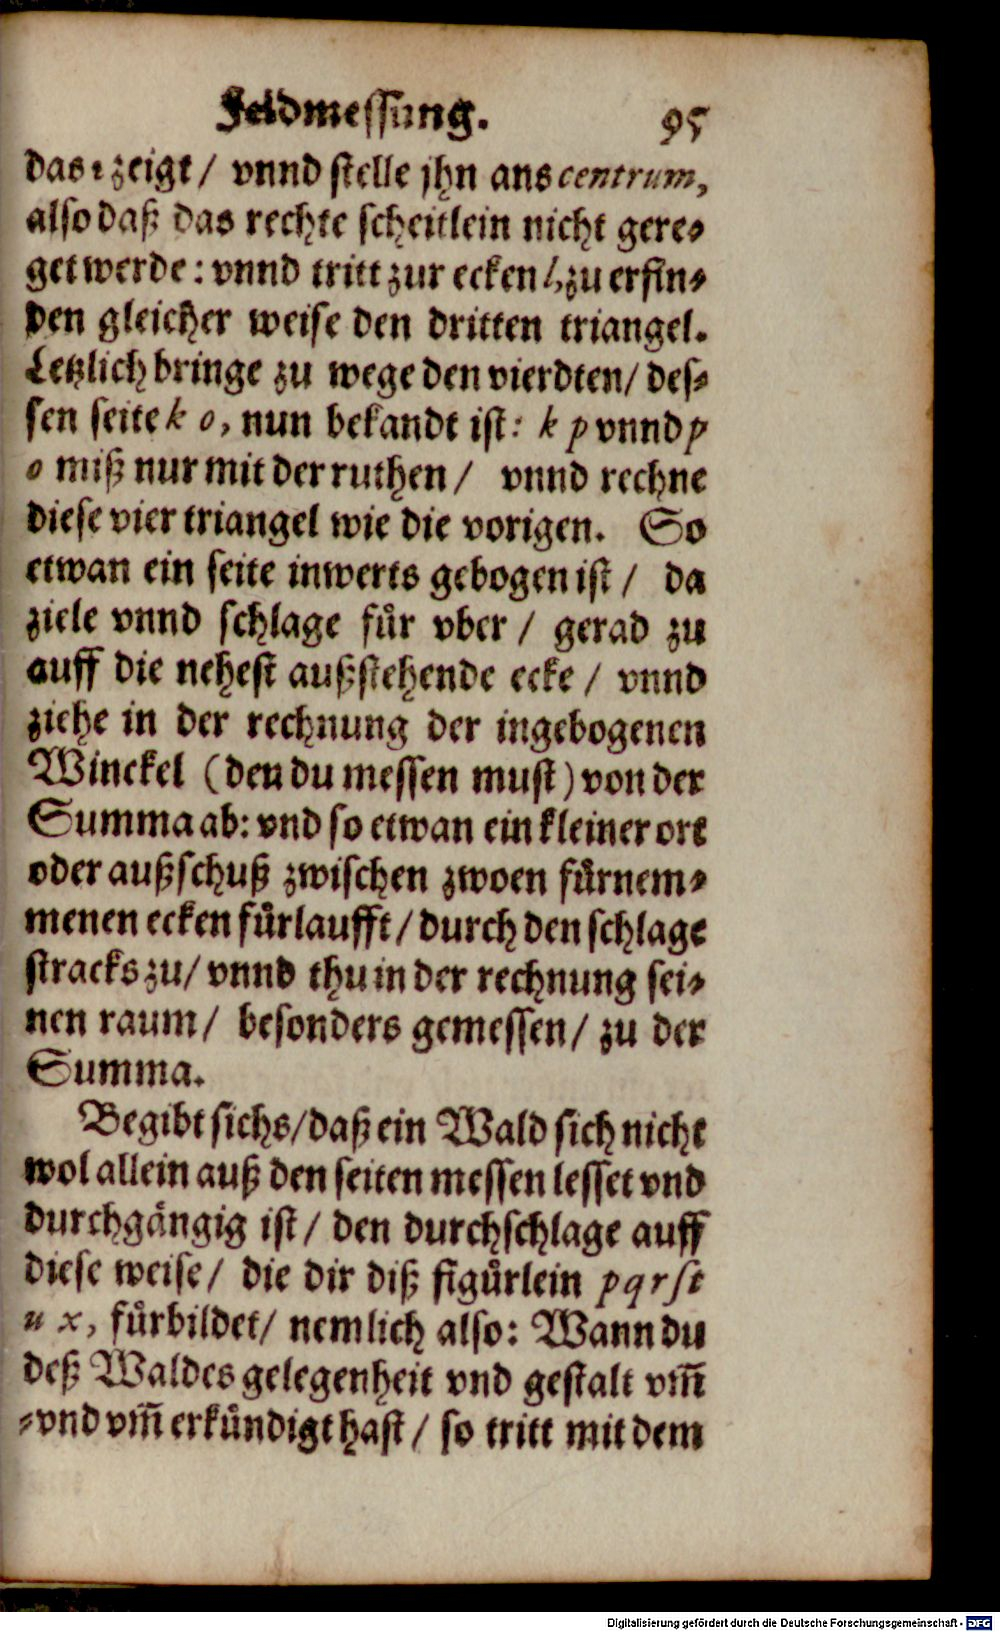 Feldmessung. 95
das zeigt / vnnd stelle jhn ans centrum,
also daß das rechte scheitlein nicht gere⸗
get werde: vnnd tritt zur ecken l, zu erfin⸗
den gleicher weise den dritten triangel.
Letzlich bringe zu wege den vierdten / des⸗
sen seite k o, nun bekandt ist: k p vnnd p
o miß nur mit der ruthen / vnnd rechne
diese vier triangel wie die vorigen. So
etwan ein seite inwerts gebogen ist / da
ziele vnnd schlage fuͤr vber / gerad zu
auff die nehest außstehende ecke / vnnd
ziehe in der rechnung der ingebogenen
Winckel (den du messen must) von der
Summa ab: vnd so etwan ein kleiner ort
oder außschuß zwischen zwoen fuͤrnem⸗
menen ecken fuͤrlaufft / durch den schlage
stracks zu / vnnd thu in der rechnung sei⸗
nen raum / besonders gemessen / zu der
Summa.
Begibt sichs / daß ein Wald sich nicht
wol allein auß den seiten messen lesset vnd
durchgaͤngig ist / den durchschlage auff
diese weise / die dir diß figuͤrlein p q r s t
u x, fuͤrbildet / nemlich also: Wann du
deß Waldes gelegenheit vnd gestalt vm̄
⸗vnd vm̄ erkuͤndigt hast / so tritt mit dem
Digitalisierung gefördert durch die Deutsche Forschungsgemeinschaft - DFG